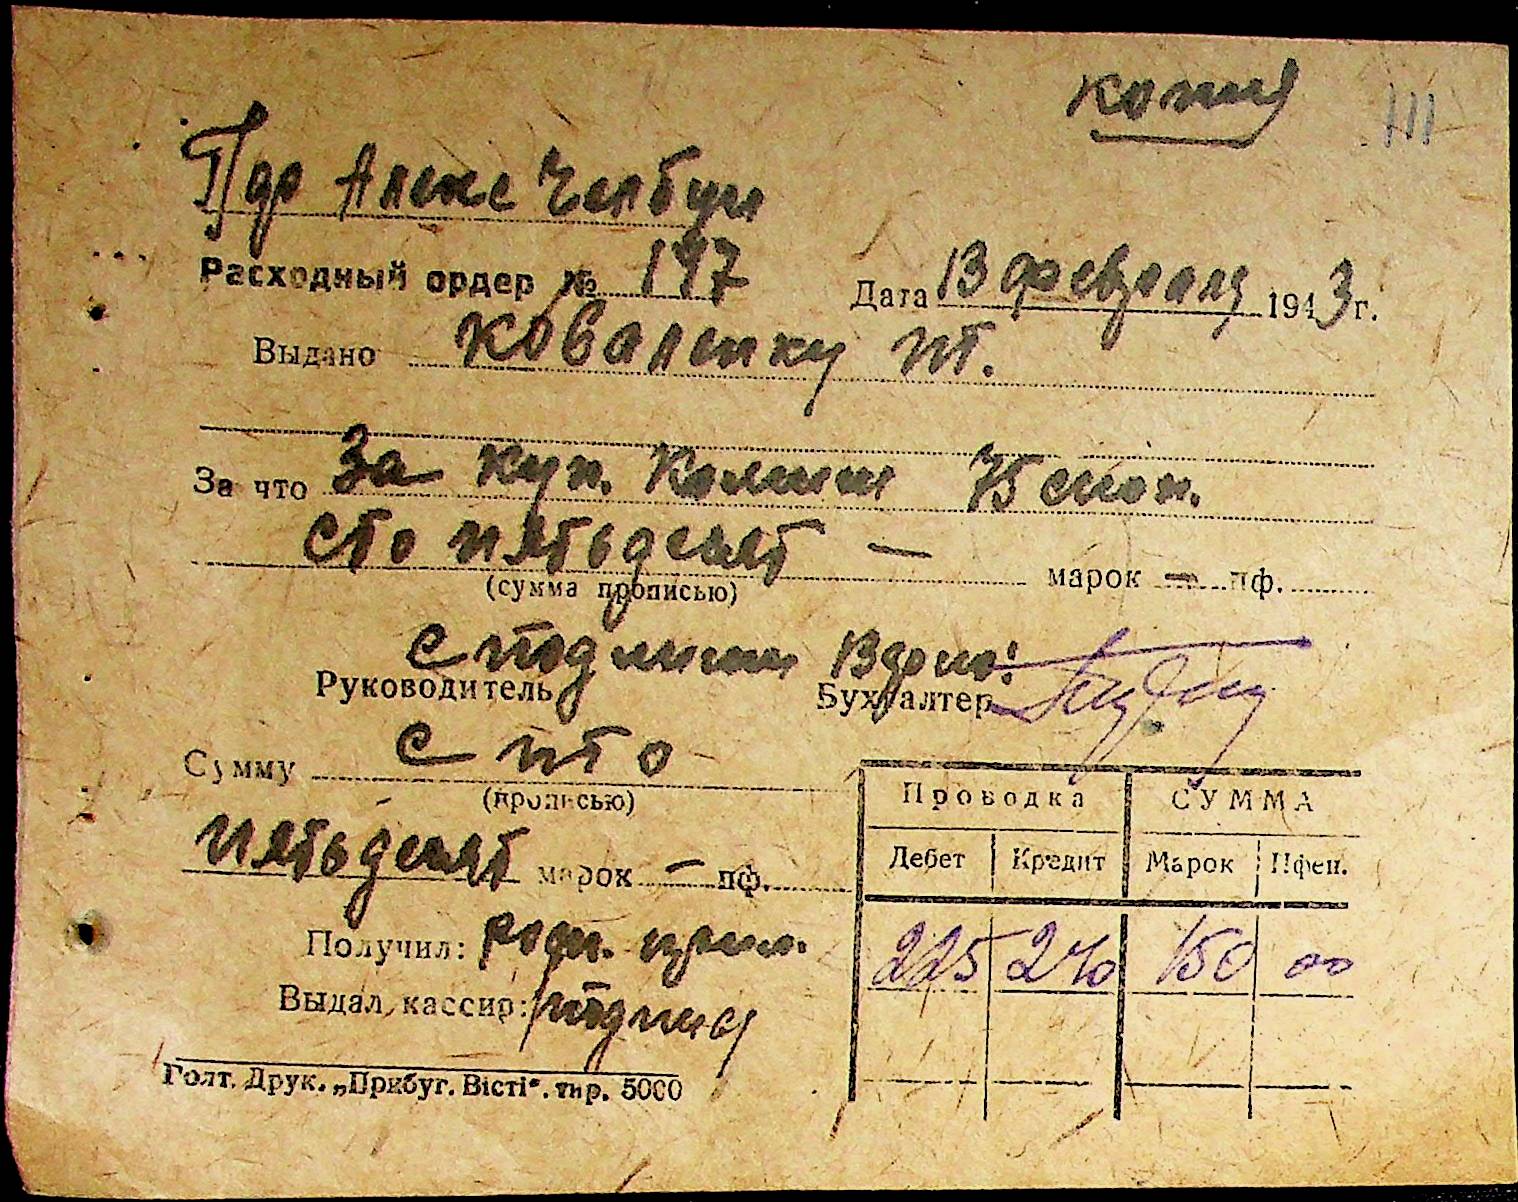 копия
111
Пдр Алекс
Расходный ордер № 147 Дата 13 февраля 1943 г.
Выдано Коваленку
За что За куп. 75
сто пятьдесят — марок — пф.
(сумма прописью)
С подлинн. верно:
Руководитель Бухгалтер
Сумму сто
(прописью)
пятьдесят марок — пф.
Получил:
Выдал кассир: подпись
Проводка СУММА
Дебет Кредит Марок Пфен.
225 240 150 00
Голт. Друк. „Прибуг. Вісті". тир. 5000